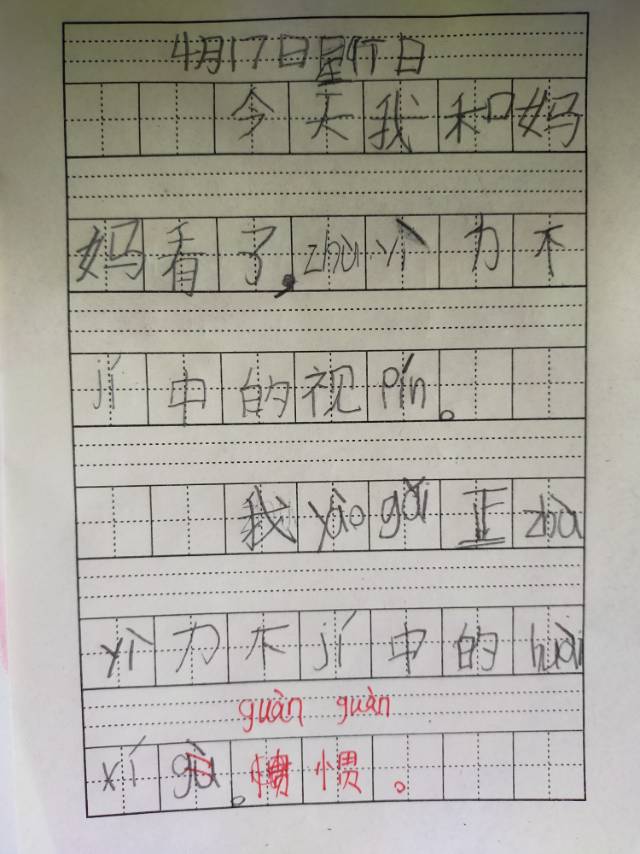 4月17日星期日
今天我和妈
妈看了,zhù yì 力不
jí 中的视 pín。
我 yào gǎi 正 zhù
yì 力不 jí 中的 huài
guàn guàn
xí 惯。